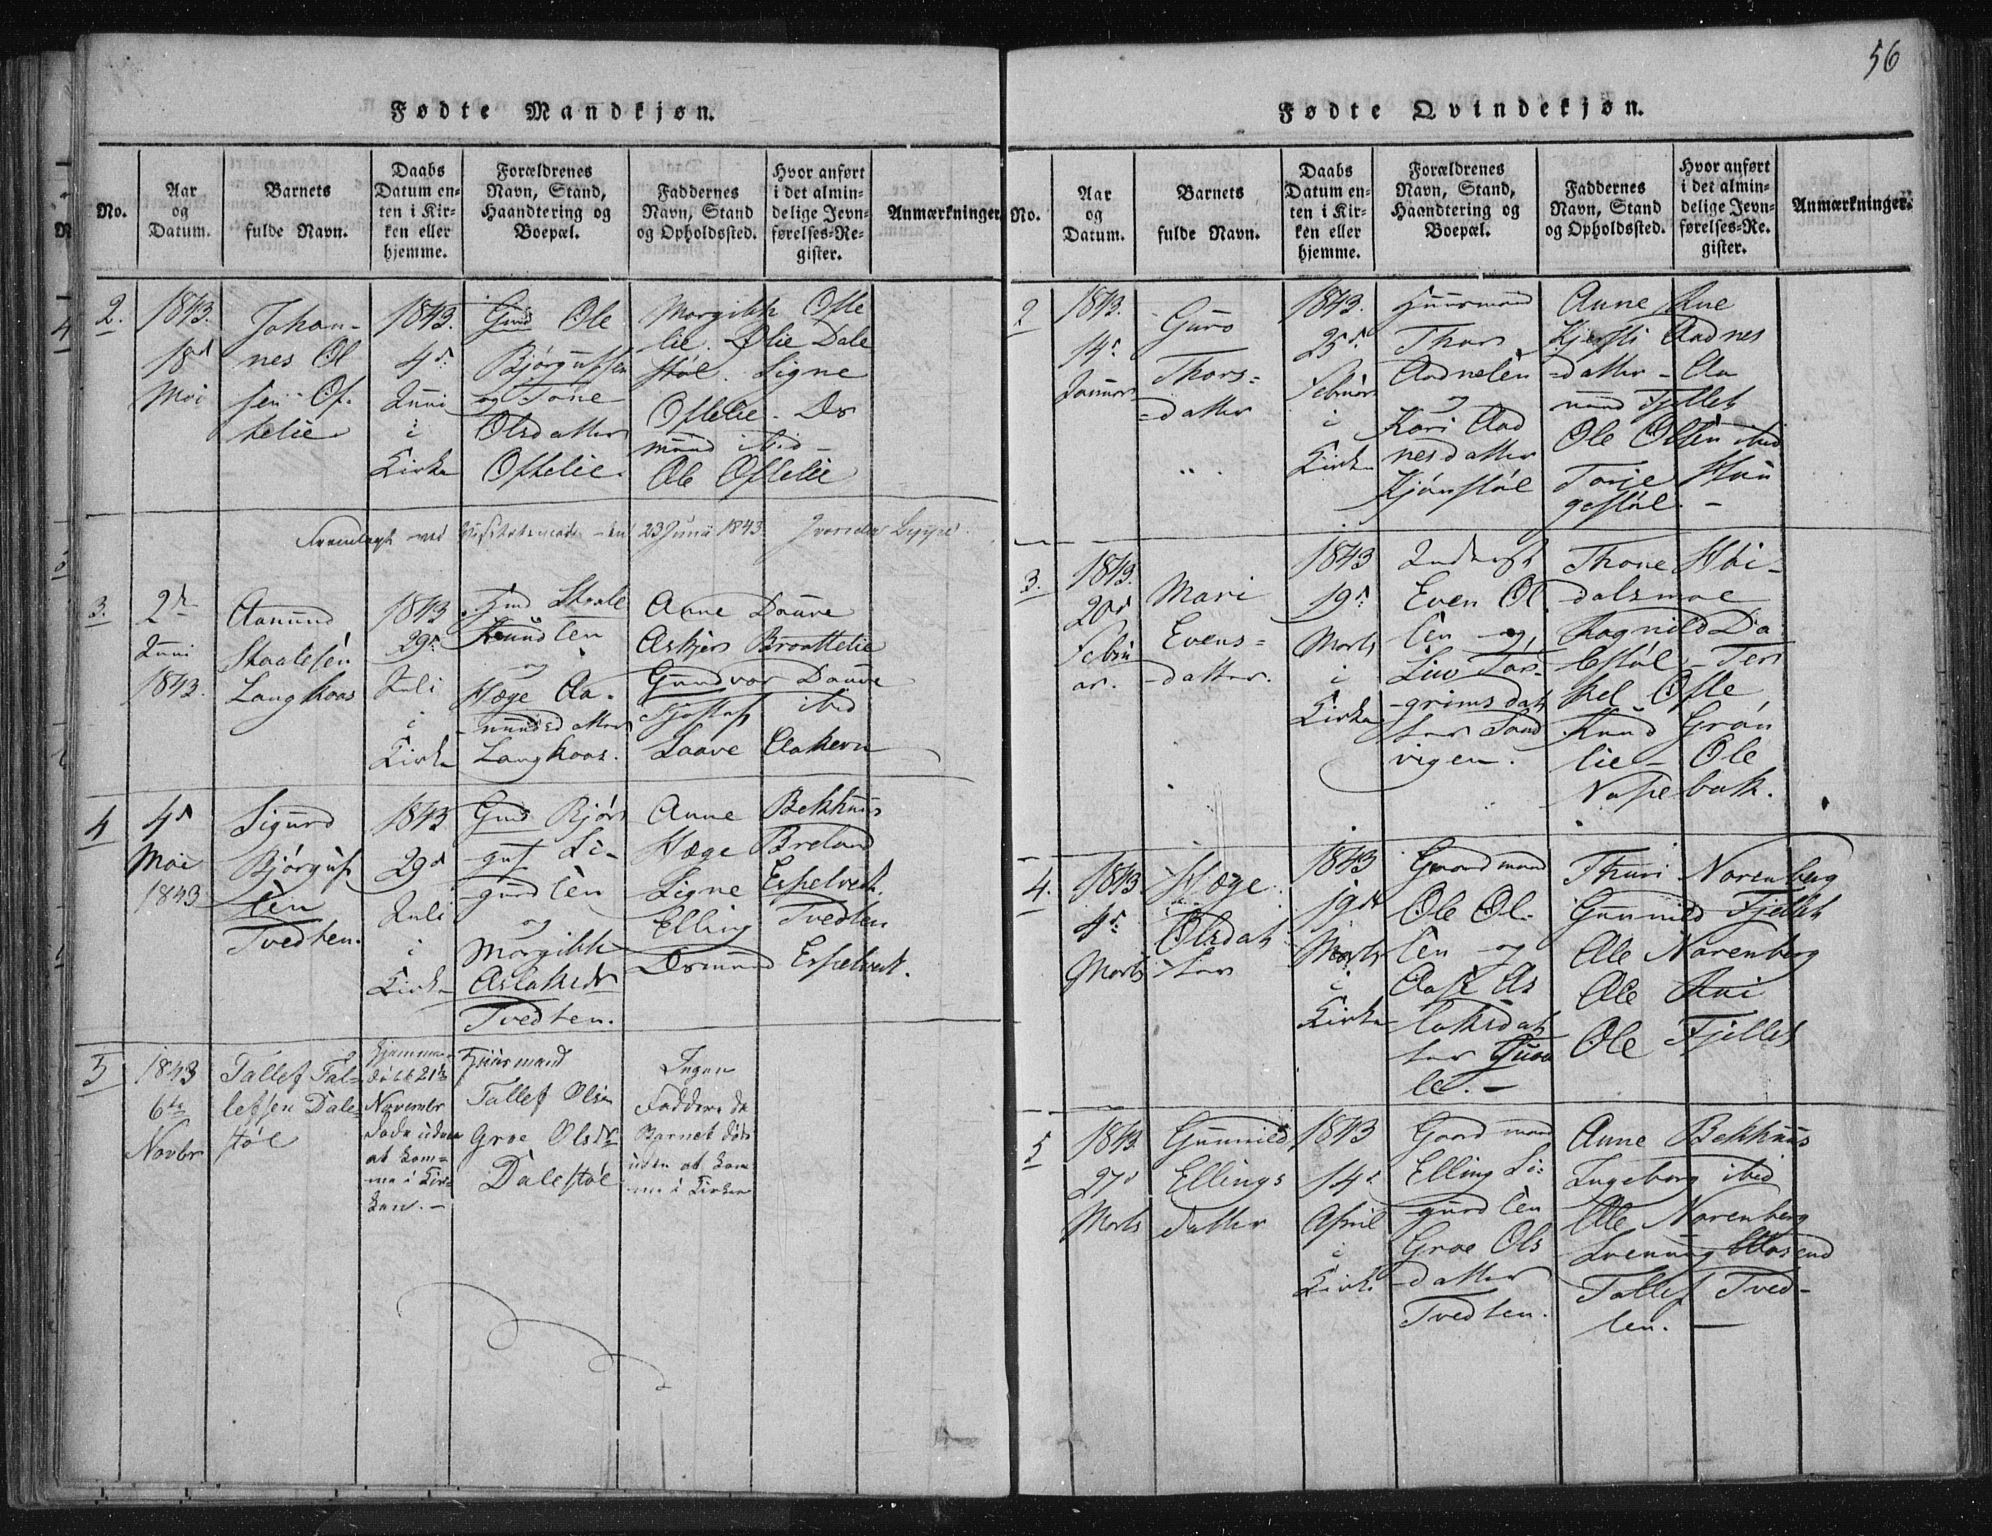 56
Fødte Mandkjøn.
No.
Aar
og
Datum.
Barnets
fulde Navn.
Daabs
Datum en-
ten i Kir-
ken eller
hjemme.
Forældrenes
Navn, Stand,
Haandtering og
Boepæl.
Faddernes
Navn, Stand
og Opholdssted.
Hvor anført
i det almin-
delige Jevn-
førelses-Re-
gister.
Anmærkninger.
2.
1843.
18de
Mai
Johan-
nes Ol
sen Of-
telie
1843.
4de
Juni
i
Kirke
Gmd Ole
Bjørgufsen
og Tone
Olsdatter
Oftelie.
Margith Ofte
lie. Olie Dale
støl. Signe
Oftelie. Os
mund ibid
Ole Oftelie
Fremlagt ved den 23 Juni 1843
3.
2den
Juni
1843.
Aamund
Staalesen
Langkaas
1843
29de
Juli
i
Kirke
Gmd Staale
Knudsen
og
Hæge Aa-
mundsdatter
Langkaas.
Anne Dauve
Asbjørn Brattelie
Gundvor Dauve
Gjøstuf ibid
Saave Aakern
4
4de
Mai
1843
Sigurd
Bjørguf
sen
Tvedten.
1843
29de
Juli
i
Kirke
Gmd Bjør
guf Si-
gurdsen
og
Margith
Aslaksdr
Tvedten.
Anne Bekhuus
Hæge Breland
Signe Espelvest.
Elling Tvedten
Osmund Espelvest.
5
1843
6te
Novbr
Tallef Tal-
lefsen Dale-
støl
Hjemme-
døbt 21de
Novembr
døde uden
at kom-
me i Kir-
ken. -
Huusmand
Tallef Olsen
Groe Olsdr
Dalestøl
Ingen
Faddere da
Barnet døde
uden at kom
me i Kirken
Fødte Qvindekjøn.
No.
Aar
og
Datum.
Barnets
fulde Navn.
Daabs
Datum en-
ten i Kir-
ken eller
hjemme.
Forældrenes
Navn, Stand,
Haandtering og
Boepæl.
Faddernes
Navn, Stand
og Opholdssted.
Hvor anført
i det almin-
delige Jevn-
førelses-Re-
gister.
Anmærkninger.
2
1843.
14de
Januar
Guro
Thors-
-datter
1843.
25de
Februar
i
Kirke
Huusmand
Thor
Aadnesen
og
Kari Aad
nesdatter
Kjønstøl
Anne Rue
Kjersti Aadnes
-datter - Aa
mund Fjellet
Ole Olsen ibid
Torje Hau
gestøl. -
3.
1843.
20de
Febru
ar.
Mari
Evens-
-datter.
1843
19de
Marts
i
Kirke
Inderst
Even Ol
sen og
Liv Tor-
-grimsdat
ter Sand
vigen.
Thone Høi-
dalsmoe
Ragnild Da
lestøl - Ter
kel Ofte
Knud Grøn
lie - Ole
Napebak.
4.
1843
4de
Marts
Hæge
Olsdat-
-ter
1843
19de
Marts
i
Kirke
Gaardmand
Ole Ol-
sen og
Aase As
laksdat
ter
le. -
Thuri Norenberg
Gunnild Fjellet
Ole Norenberg
Ole Rui
Ole Fjellet
5
1843
27de
Marts
Gunnild
Ellings
datter
1843
14de
April
i
Kirke
Gaardmand
Elling Si-
gurdsen
Groe Ols
-datter
Tvedten.
Anne Bekhuus
Ingeborg ibid
Ole Norenberg
Svenung Mosend
Tallef Tved-
ten. -